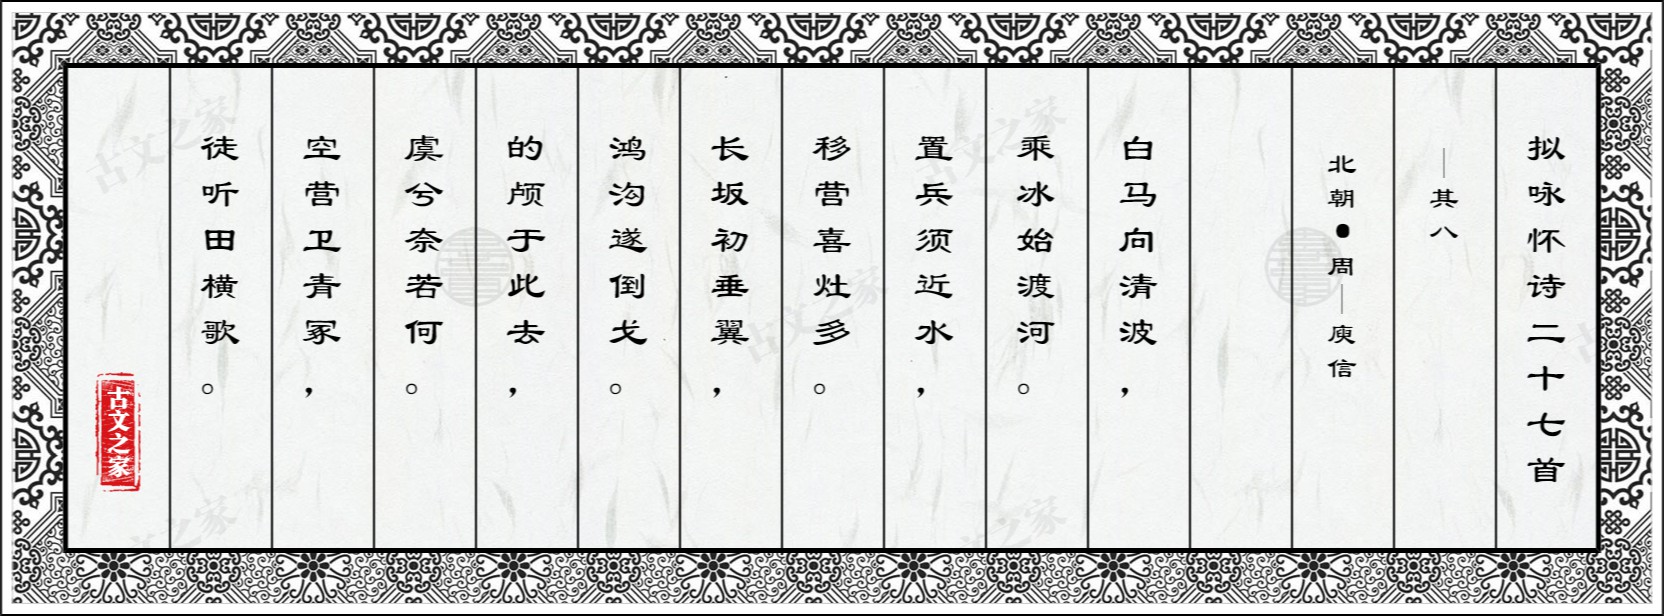 拟咏怀诗二十七首
—其八
北朝●周—庾信
白马向清波，
乘冰始渡河。
置兵须近水，
移营喜灶多。
长坂初垂翼，
鸿沟遂倒戈。
的颅于此去，
虞兮奈若何。
空营卫青冢，
徒听田横歌。
古文之家